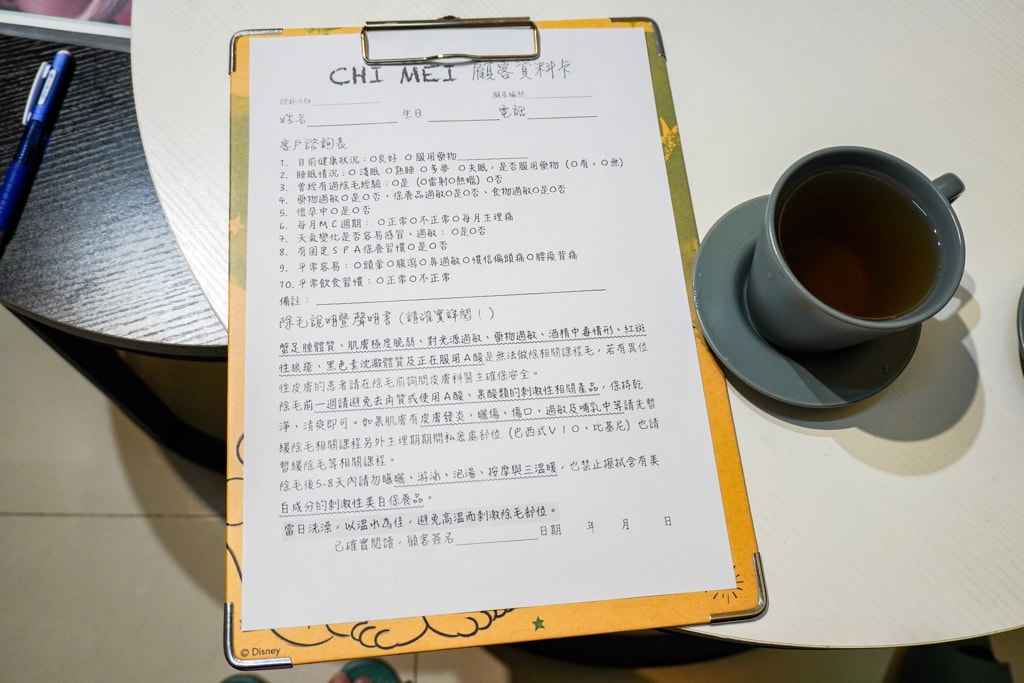 CHI MEI 顧客資料卡
諮詢日期 顧客編號
姓名 生日 電話
客戶諮詢表
1. 目前健康狀況:O良好 O服用藥物
2. 睡眠情況:O淺眠 O熟睡 O多夢 O失眠,是否服用藥物(O有,O無)
3. 曾經有過除毛經驗:O是(O雷射O熱蠟)O否
4. 藥物過敏O是O否、保養品過敏O是O否、食物過敏O是O否
5. 懷孕中O是O否
6. 每月MC週期: O正常O不正常O每月生理痛
7. 天氣變化是否容易感冒、過敏: O是O否
8. 有固定SPA保養習慣O是O否
9. 平常容易:O頭暈O腹瀉O鼻過敏O慣信偏頭痛O腰痠背痛
10. 平常飲食習慣:O正常O不正常
備註:
除毛說明暨聲明書(請確實詳閱!)
蟹足腫體質、肌膚極度脆弱、對光源過敏、藥物過敏、酒精中毒情形、紅斑
性狼瘡、黑色素沈澱體質及正在服用A酸是無法做除相關課程毛,若有異位
性皮膚的患者請在除毛前詢問皮膚科醫生確保安全。
除毛前一週請避免去角質或使用A酸、果酸類的刺激性相關產品,保持乾
淨、清爽即可。如果肌膚有皮膚發炎、曬傷、傷口、過敏及哺乳中等請先暫
緩除毛相關課程另外生理期期間私密處部位(巴西式VIO、比基尼)也請
暫緩除毛等相關課程。
除毛後5-8天內請勿曝曬、游泳、泡湯、按摩與三溫暖,也禁止擦拭含有美
白成分的刺激性美白保養品。
當日洗澡,以溫水為佳,避免高溫而刺激除毛部位。
已確實閱讀,顧客簽名 日期 年 月 日
© Disney